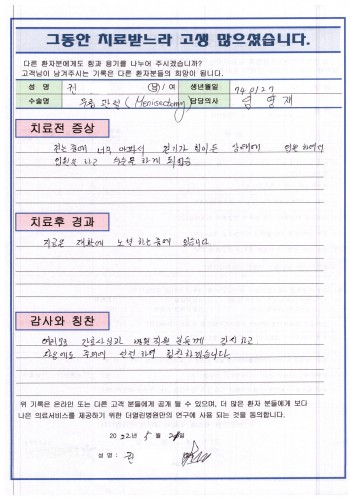 그동안 치료받느라 고생 많으셨습니다.
다른 환자분에게도 힘과 용기를 나누어 주시겠습니까?
고객님이 남겨주시는 기록은 다른 환자분들의 희망이 됩니다.
성 명 전 남 / 여 생년월일 740127
수술명 무릎 관절 (Meniscectomy) 담당의사
치료전 증상
너무 아파서 걷기가 힘이든 상태에
입원 하고 수술을 하게 되었음
치료후 경과
지금은 재활에 노력 하는중에 있습니다
감사와 칭찬
간호사님과 병원 직원 분들께 감사하고
위 기록은 온라인 또는 다른 고객 분들에게 공개 될 수 있으며, 더 많은 환자 분들에게 보다
나은 의료서비스를 제공하기 위한 더열린병원만의 연구에 사용 되는 것을 동의합니다.
2022년 5월 일
성 명 :